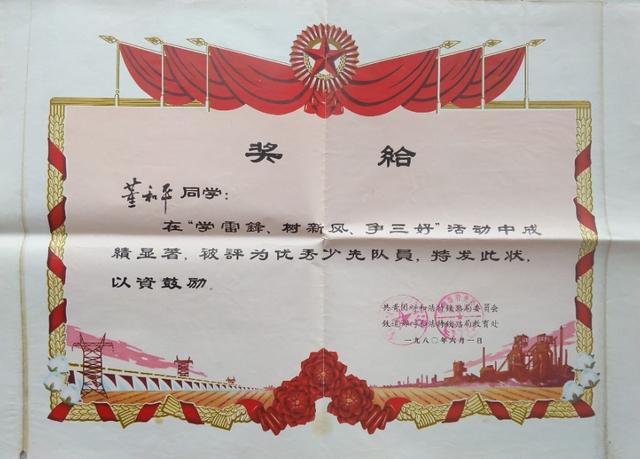 奖 给
董和平 同学：
在“学雷鋒、树新风、争三好”活动中成
績显著，被評为优秀少先队員，特发此状，
以資鼓励。
共青团呼和浩特铁路局委员会
铁道部呼和浩特铁路局教育处
一九八〇年六月一日